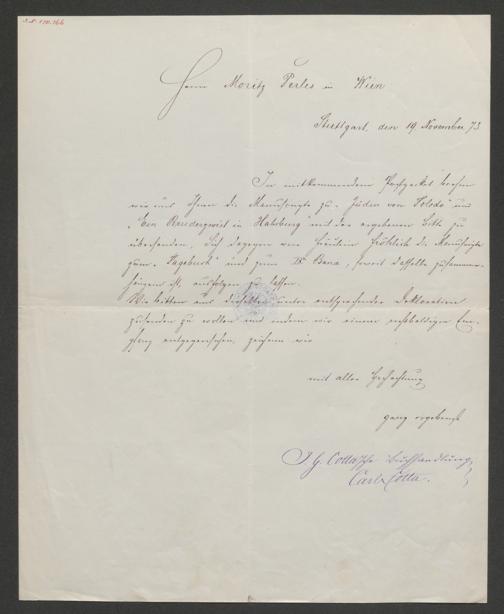 Herrn Moritz Perles in Wien
Stuttgart, den 19 November 73
In mitkommendem Postpacket beehren
wir uns Ihnen die Manuscripte zu „Jüden von Toledo" und
„Ein Bruderzwist in Habsburg" mit der ergebenen Bitte zu
übersenden, Sich dagegen von Fräulein Fröhlich die Manuscripte
zum „Tagebuch" und zum Bande, soweit dasselbe zusammen-
hängen ist, ausfolgen zu lassen.
Wir bitten uns dieselben unter entsprechender Deklaration
zusenden zu wollen und indem wir einem rechtbaldigen Em-
pfang entgegensehen, zeichnen wir
mit aller Hochachtung
ganz ergebenst
J. G. Cotta'sche Buchhandlung
Carl Cotta.